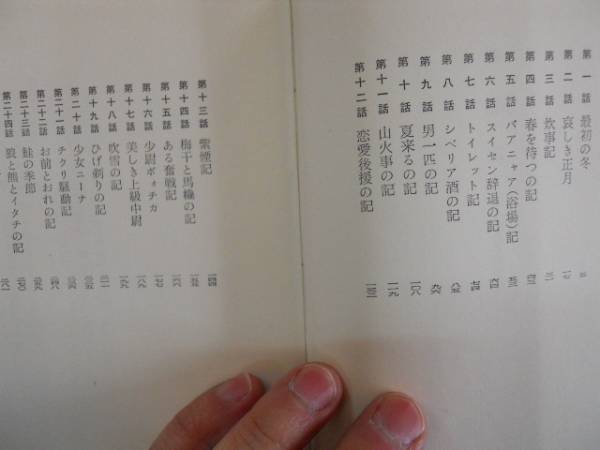 第一話 最初の冬
第二話 哀しき正月
第三話 炊事記
第四話 春を待つの記
第五話 バアニャア(浴場)記
第六話 スイセン辞退の記
第七話 トイレット記
第八話 シベリア酒の記
第九話 男一匹の記
第十話 夏来るの記
第十一話 山火事の記
第十二話 恋愛後援の記
第十三話 紫煙記
第十四話 梅干と馬糧の記
第十五話 ある奮戦記
第十六話 少尉ボォチカ
第十七話 美しき上級中尉
第十八話 吹雪の記
第十九話 ひげ剃りの記
第二十話 少女ニーナ
第二十一話 チクリ騒動記
第二十二話 お前とおれの記
第二十三話 鮭の季節
第二十四話 狼と熊とイタチの記